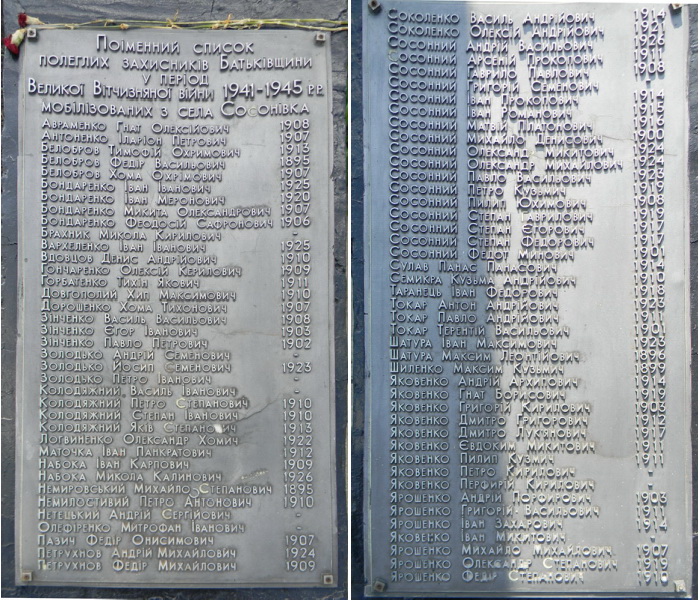 Поіменний список
полеглих захисників Батьківщини
у період
Великої Вітчизняної війни 1941-1945 рр.
мобілізованих з села Сосонівка
Авраменко Гнат Олексійович 1908
Антоненко Іларіон Петрович 1907
Белобров Тимофій Охримович 1913
Белобров Федір Васильович 1895
Белобров Хома Охрімович 1907
Бондаренко Іван Іванович 1925
Бондаренко Іван Меронович 1920
Бондаренко Микита Олександрович 1907
Бондаренко Феодосій Сафронович 1906
Брахник Микола Кирилович
Вархеленко Іван Іванович 1925
Вдовцов Денис Андрійович 1910
Гончаренко Олексій Керилович 1909
Горбатенко Тихін Якович 1911
Довгополий Хип Максимович 1910
Дорошенко Хома Тихонович 1907
Зінченко Василь Васильович 1908
Зінченко Єгор Іванович 1903
Зінченко Павло Петрович 1902
Золодько Андрій Семенович -
Золодько Йосип Семенович 1923
Золодько Петро Іванович -
Колодяжний Василь Іванович -
Колодяжний Петро Степанович 1910
Колодяжний Степан Іванович 1910
Колодяжний Яків Степанович 1913
Логвиненко Олександр Хомич 1922
Маточка Іван Панкратович 1912
Набока Іван Карпович 1909
Набока Микола Калинович 1926
Немировський Михайло Степанович 1895
Немилостивий Петро Антонович 1910
Нетецький Андрій Сергійович -
Олефіренко Митрофан Іванович -
Пазич Федір Онисимович 1907
Петрухнов Андрій Михайлович 1924
Петрухнов Федір Михайлович 1909
Соколенко Василь Андрійович 1914
Соколенко Олексій Андрійович 1921
Сосонний Андрій Васильович 1926
Сосонний Арсеній Прокопович
Сосонний Гаврило Павлович 1908
Сосонний Григорій Семенович
Сосонний Іван Прокопович
Сосонний Іван Романович
Сосонний Матвій Платонович
Сосонний Михайло Денисович
Сосонний Олександр Микитович
Сосонний Олександр Микитович
Сосонний Павло Васильович
Сосонний Петро Кузьмич
Сосонний Пилип Юхимович 1908
Сосонний Степан Гаврилович
Сосонний Степан Єгорович
Сосонний Степан Федорович
Сосонний Федот Минович
Сулав Панас Панасович
Семикра Кузьма Андрійович
Таранець Іван Федорович
Токар Антон Андрійович
Токар Павло Андрійович 1911
Токар Терентій Васильович 1901
Шатура Іван Максимович 1923
Шатура Максим Леонтійович 1896
Шиленко Максим Кузьмич 1899
Яковенко Андрій Архипович 1914
Яковенко Гнат Борисович 1919
Яковенко Григорій Кирилович 1903
Яковенко Дмитро Григорович 1912
Яковенко Дмитро Лукянович
Яковенко Євдоким Микитович 1911
Яковенко Пилип Кузьмич 1911
Яковенко Петро Кирилович -
Яковенко Перфирій Кирилович -
Ярошенко Андрій Порфирович 1903
Ярошенко Григорій Васильович 1911
Ярошенко Іван Захарович 1914
Яковенко Іван Микитович -
Ярошенко Михайло Михайлович 1907
Ярошенко Олександр Степанович 1919
Ярошенко Федір Степанович